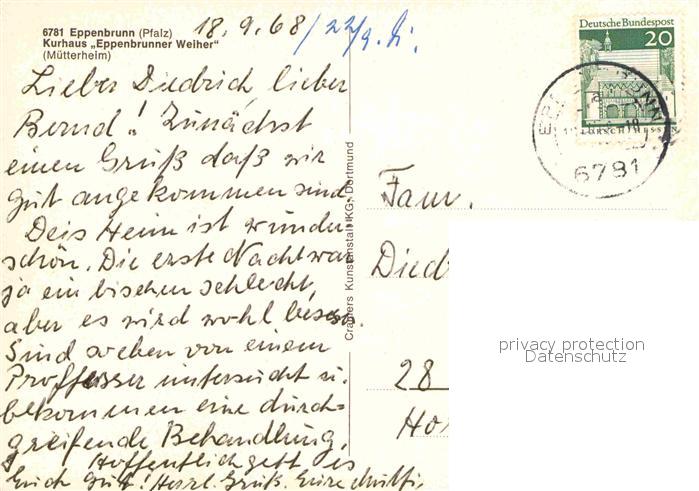 6781 Eppenbrunn (Pfalz)
Kurhaus „Eppenbrunner Weiher"
(Mütterheim)
18.9.68
/22/9.
Deutsche Bundespost
20
LORSCH/HESSEN
6781
Lieber Diedrich, lieber
Bernd! Zunächst
einen Gruß daß wir
gut angekommen sind.
Deis Heim ist wunder
schön. Die erste Nacht war
ja ein bischen schlecht,
aber es wird wohl besser.
Sind soeben von einem
Proffesser untersucht u.
bekommen eine durch=
greifende Behandlung.
Hoffentlich geht es
Euch gut! Herzl. Gruß. Eure
Cramers Kunstanstalt KG, Dortmund
Fam.
Died
28
privacy protection
Datenschutz